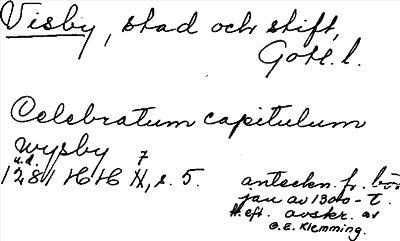 Visby, stad och stift,
Gotl. l.
Celebratum capitulum
wysby
u.d. 7
1281 HH N, s. 5.
anteckn. fr. bör
jan av 1300-t.
H. eft. avskr. av
G. E. Klemming.